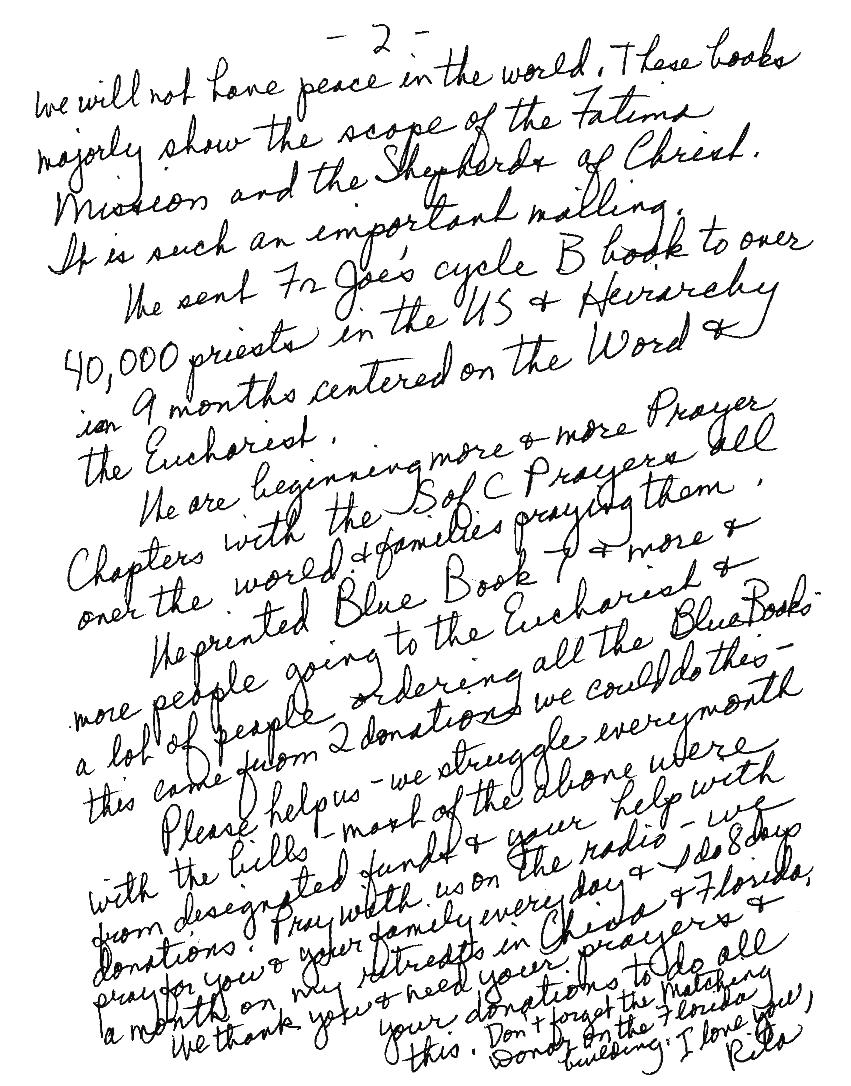 - 2 -
we will not have peace in the world. These books
majorly show the scope of the Fatima
Mission and the Shepherds of Christ.
It is such an important mailling.
We sent Fr Joe's cycle B book to over
40,000 priests in the US & Heirarchy
in 9 months centered on the Word &
the Eucharist.
We are beginning more & more Prayer
Chapters with the S of C Prayers all
over the world & families praying them.
We printed Blue Book 7 & more &
more people going to the Eucharist &
a lot of people ordering all the Blue Books -
this came from 2 donations we could do this -
Please help us - we struggle every month
with the bills - most of the above were
from designated funds & your help with
donations. Pray with us on the radio - we
pray for you & your family every day & I do 8 days
a month on my retreats in China & Florida.
We thank you & need your prayers &
your donations to do all
this. Don't forget the Matching
Donor on the Florida
building. I love you,
Rita